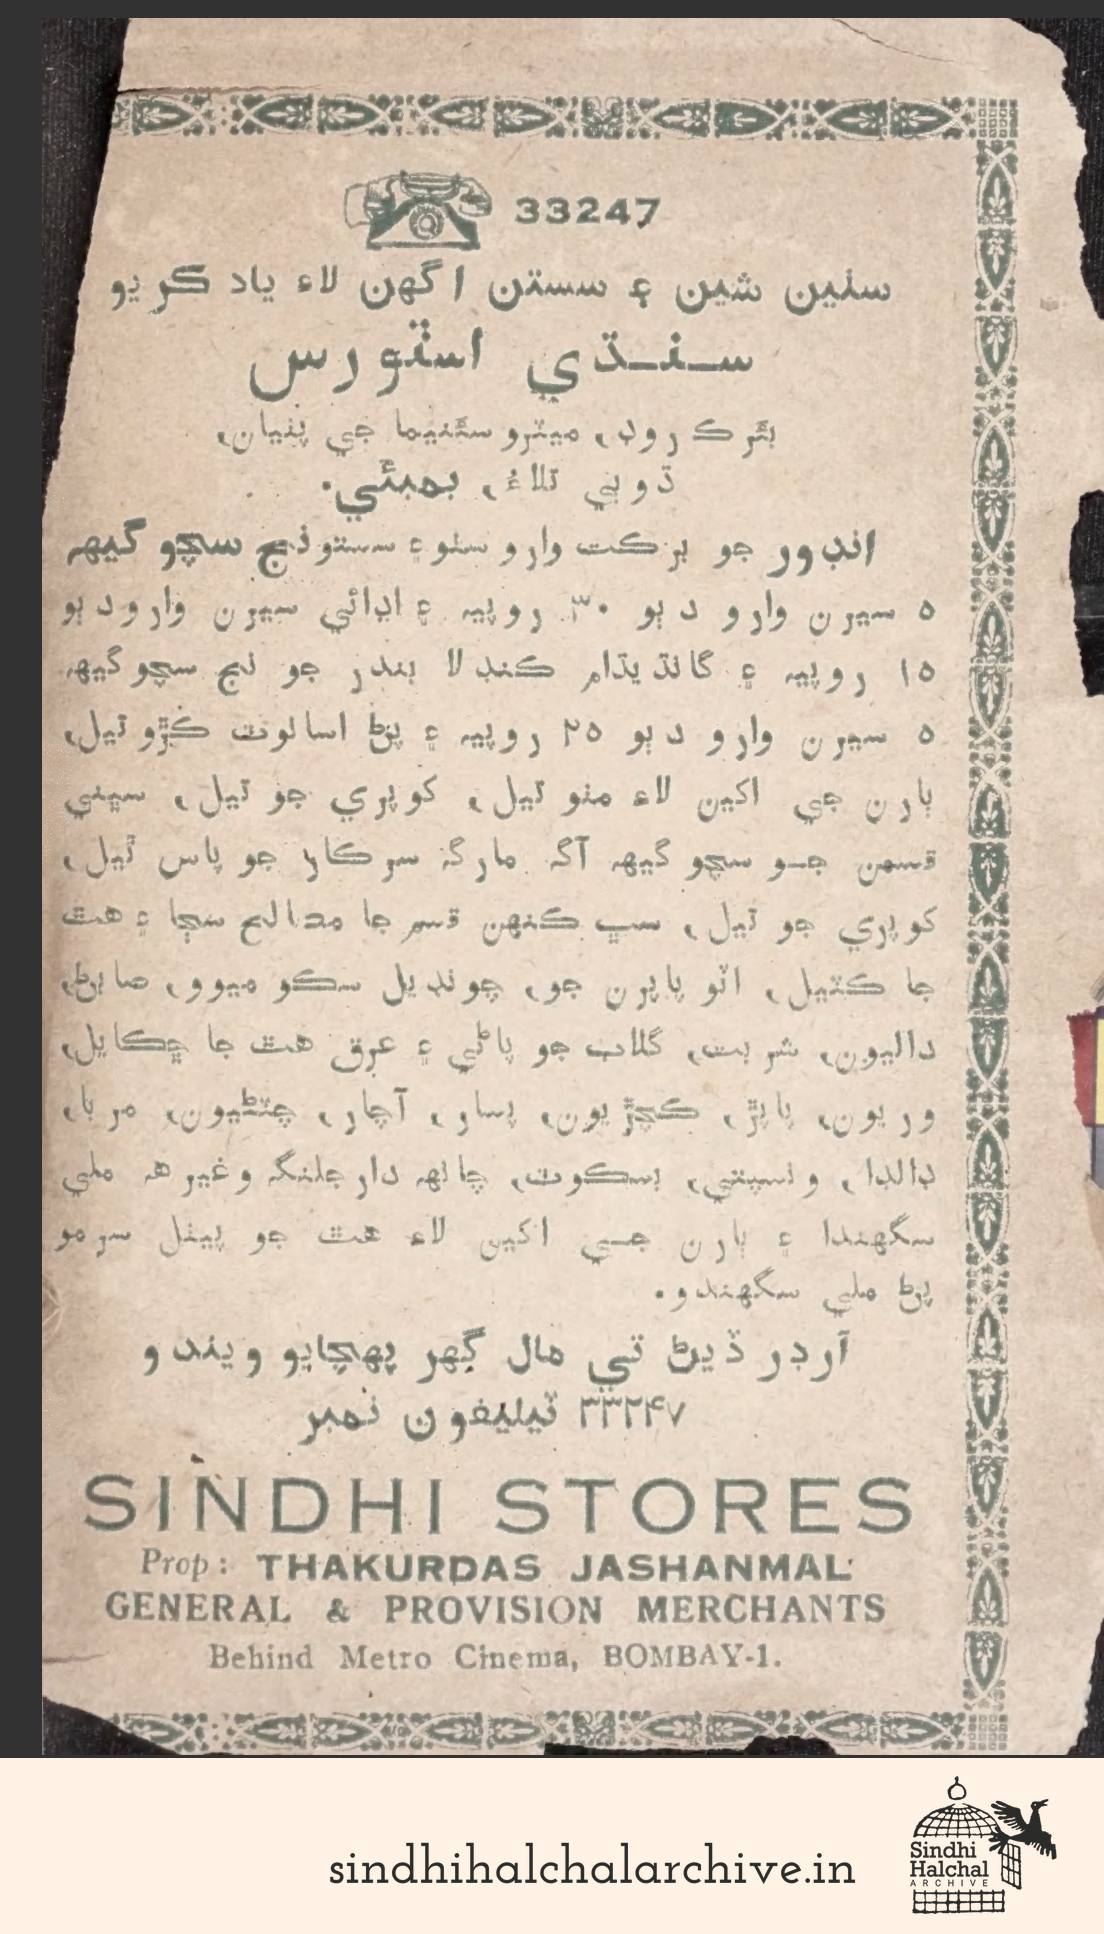 33247
سٺين شين ۽ سستن اگهن لاءِ ياد ڪريو
سنڌي اسٽورس
بئرڪ روڊ، ميٽرو سئنيما جي پٺيان،
ڌوٻي تلاءُ، بمبئي.
انڊور جو برڪت وارو سٺو ۽ سستو نج سچو گيهه
٥ سيرن وارو دٻو ٣٠ روپيه ۽ اڍائي سيرن وارو دٻو
١٥ روپيه ۽ گانڌيڌام ڪنڊلا بندر جو نج سچو گيهه
٥ سيرن وارو دٻو ٢٥ روپيه ۽ پڻ اسانوٽ ڪڙو تيل،
ٻارن جي اکين لاءِ مٺو تيل، کوپري جو تيل، سڀني
قسمن جو سچو گيهه آگ مارگ سرڪار جو پاس ٿيل،
کوپري جو تيل، سڀ ڪنهن قسم جا مصالح سڄا ۽ هٿ
جا ڪٽيل، اٽو پاپرن جو، چونڊيل سڪو ميوو، صابڻ،
داليون، شربت، گلاب جو پاڻي ۽ عرق هٿ جا ڇڪايل،
وريون، پاپڙ، کچڙيون، پسار، آچار، چٽڻيون، مربا،
ڊالڊا، ونسپتي، بسڪوٽ، چانهه دارجلنگ وغيره ملي
سگهندا ۽ ٻارن جي اکين لاءِ هٿ جو پيٺل سرمو
پڻ ملي سگهندو.
آرڊر ڏيڻ تي مال گهر پهچايو ويندو
٣٣٢۴٧ ٽيليفون نمبر
SINDHI STORES
Prop: THAKURDAS JASHANMAL
GENERAL & PROVISION MERCHANTS
Behind Metro Cinema, BOMBAY-1.
sindhihalchalarchive.in
Sindhi
Halchal
ARCHIVE